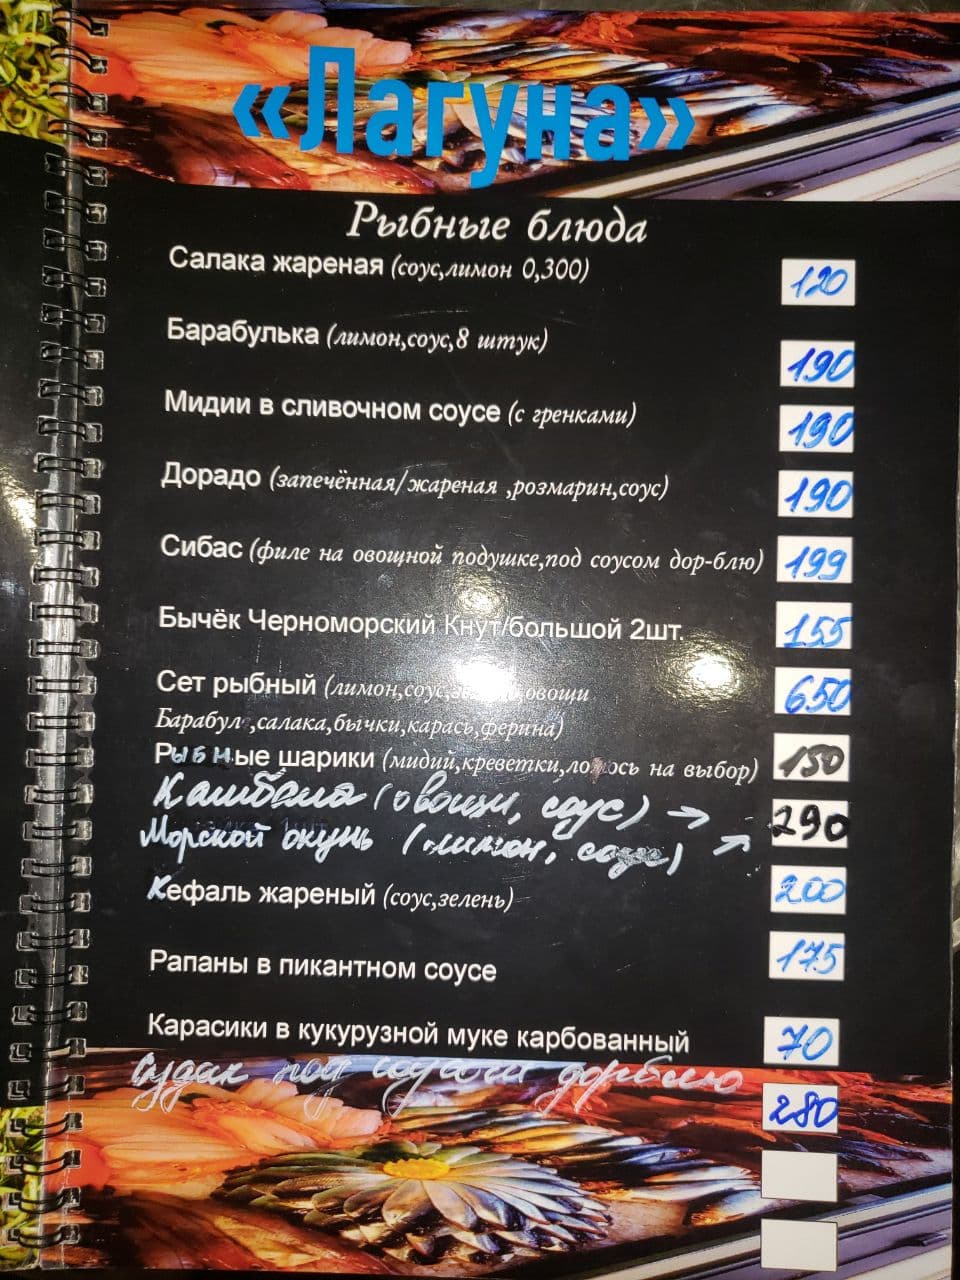 «Лагуна»
Рыбные блюда
Салака жареная (соус,лимон 0,300) 120
Барабулька (лимон,соус,8 штук) 190
Мидии в сливочном соусе (с гренками) 190
Дорадо (запечённая/жареная ,розмарин,соус) 190
Сибас (филе на овощной подушке,под соусом дор-блю) 199
Бычёк Черноморский Кнут/большой 2шт. 155
Сет рыбный (лимон,соус, овощи 650
Барабул ,салака,бычки,карась,ферина)
Рыбные шарики (мидий,креветки,лосось на выбор) 150
Камбала (овощи, соус) → 290
Морской окунь (лимон, соус) →
Кефаль жареный (соус,зелень) 200
Рапаны в пикантном соусе 175
Карасики в кукурузной муке карбованный 70
Судак под соусом дорблю 280